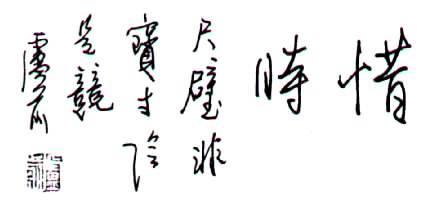 惜時
尺璧非
寶寸陰
是競